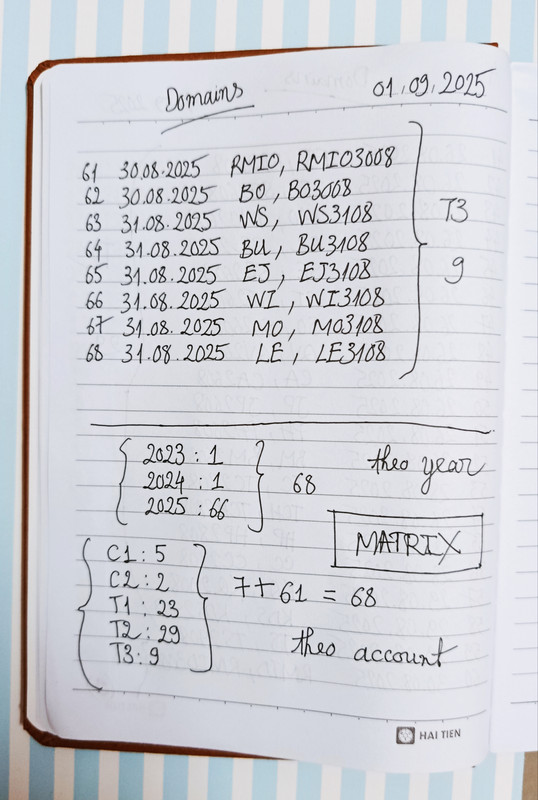 Domains
01.09.2025
61 30.08.2025 RMIO, RMIO3008
62 30.08.2025 BO, BO3008
63 31.08.2025 WS, WS3108
64 31.08.2025 BU, BU3108
65 31.08.2025 EJ, EJ3108
66 31.08.2025 WI, WI3108
67 31.08.2025 MO, MO3108
68 31.08.2025 LE, LE3108
T3
9
2023 : 1
2024 : 1
2025 : 66
68
theo year
MATRIX
C1 : 5
C2 : 2
T1 : 23
T2 : 29
T3 : 9
7 + 61 = 68
theo account
HAI TIEN